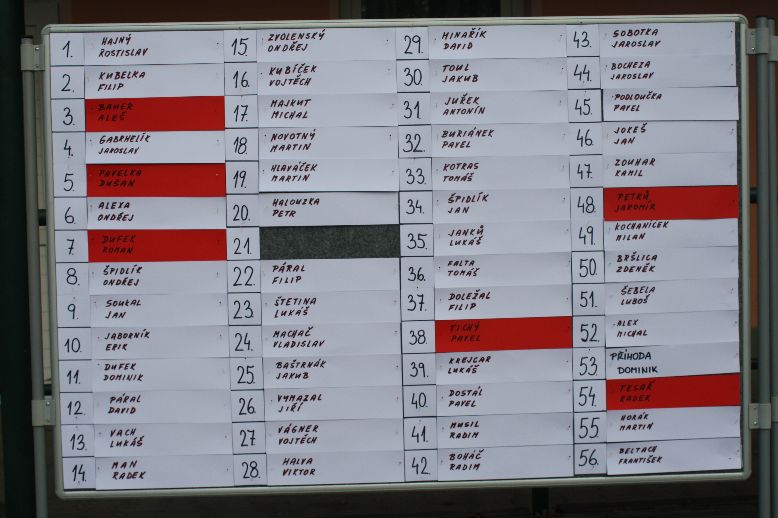 1. HAJNÝ
ROSTISLAV
2. KUBELKA
FILIP
3. BAUER
ALEŠ
4. GABRHELÍK
JAROSLAV
5. PAVELKA
DUŠAN
6. ALEXA
ONDŘEJ
7. DUFEK
ROMAN
8. ŠPIDLÍK
ONDŘEJ
9. SOUKAL
JAN
10. JABORNÍK
ERIK
11. DUFEK
DOMINIK
12. PÁRAL
DAVID
13. VACH
LUKÁŠ
14. MAN
RADEK
15. ZVOLENSKÝ
ONDŘEJ
16. KUBÍČEK
VOJTĚCH
17. MAJKUT
MICHAL
18. NOVOTNÝ
MARTIN
19. HLAVÁČEK
MARTIN
20. HALOUZKA
PETR
21.
22. PÁRAL
FILIP
23. ŠTETINA
LUKÁŠ
24. MACHAČ
VLADISLAV
25. BAŠTRNÁK
JAKUB
26. VYMAZAL
JIŘÍ
27. VÁGNER
VOJTĚCH
28. HALVA
VIKTOR
29. MINAŘÍK
DAVID
30. TOUL
JAKUB
31. JUŘEK
ANTONÍN
32. BURIÁNEK
PAVEL
33. KOTRAS
TOMÁŠ
34. ŠPIDLÍK
JAN
35. JANKŮ
LUKÁŠ
36. FALTA
TOMÁŠ
37. DOLEŽAL
FILIP
38. TICHÝ
PAVEL
39. KREJCAR
LUKÁŠ
40. DOSTÁL
PAVEL
41. MUSIL
RADIM
42. BOHÁČ
RADIM
43. SOBOTKA
JAROSLAV
44. BOCHEZA
JAROSLAV
45. PODLOUČKA
PAVEL
46. JOKEŠ
JAN
47. ZOUHAR
KAMIL
48. PETRŮ
JAROMÍR
49. KOCHANÍČEK
MILAN
50. BRŠLICA
ZDENĚK
51. ŠEBELA
LUBOŠ
52. ALEX
MICHAL
53. PŘÍHODA
DOMINIK
54. TESAŘ
RADEK
55. HORÁK
MARTIN
56. BELTACH
FRANTIŠEK